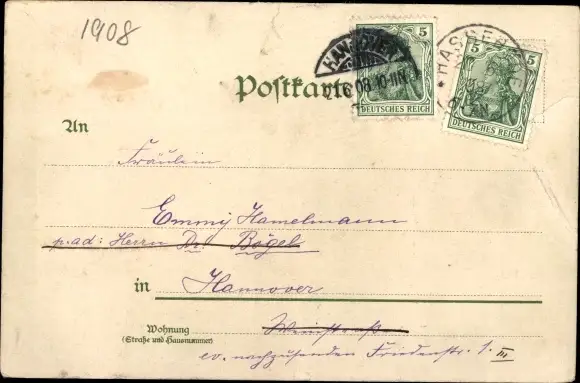 1908
Postkarte
HANNOVER
21.6.08.10-11N.
5
DEUTSCHES REICH
5 5
DEUTSCHES REICH
An
Fräulein
Emmy Hamelmann
p. ad: Herrn Dr. Bögel
in Hannover
Wohnung
(Straße und Hausnummer)
Weinstraße
ev. nachzusenden Friedenstr. 1. III